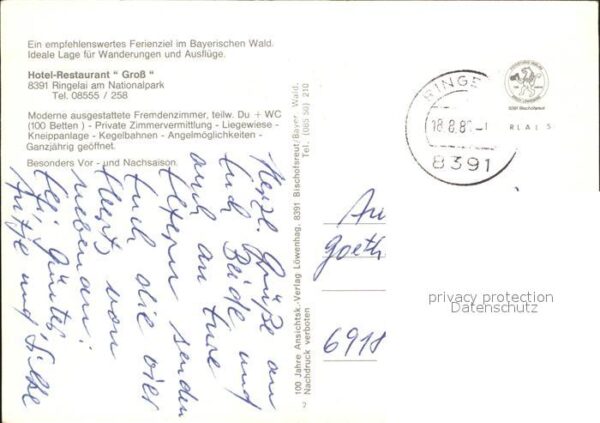 Ein empfehlenswertes Ferienziel im Bayerischen Wald.
Ideale Lage für Wanderungen und Ausflüge.
Hotel-Restaurant " Groß "
8391 Ringelai am Nationalpark
Tel. 08555 / 258
Moderne ausgestattete Fremdenzimmer, teilw. Du + WC
(100 Betten) - Private Zimmervermittlung - Liegewiese -
Kneippanlage - Kegelbahnen - Angelmöglichkeiten -
Ganzjährig geöffnet.
Besonders Vor - und Nachsaison.
Herzl. Grüße an
Euch Beide und
auch an Eure
Eltern senden
Euch die vier
von
nebenan!
Günter,
Antje und Silke
100 Jahre Ansichtsk.-Verlag Löwenhag, 8391 Bischofsreut/Bayer. Wald.
Tel. (085 50) 210
Nachdruck verboten
RINGE
18.8.8
8391
RLAL S
8391 Bischofsreut
An
Goeth
6918
privacy protection
Datenschutz